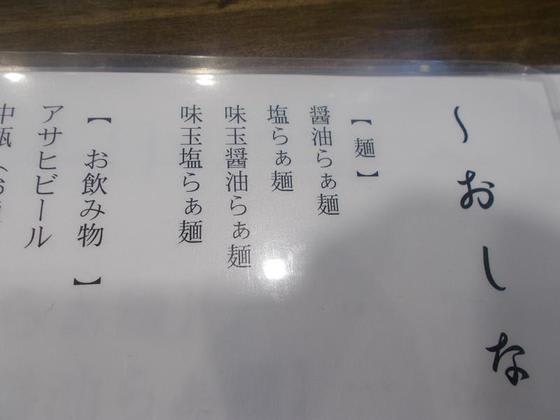 ～おしな
【麺】
醤油らぁ麺
塩らぁ麺
味玉醤油らぁ麺
味玉塩らぁ麺
【お飲み物】
アサヒビール
中瓶（お